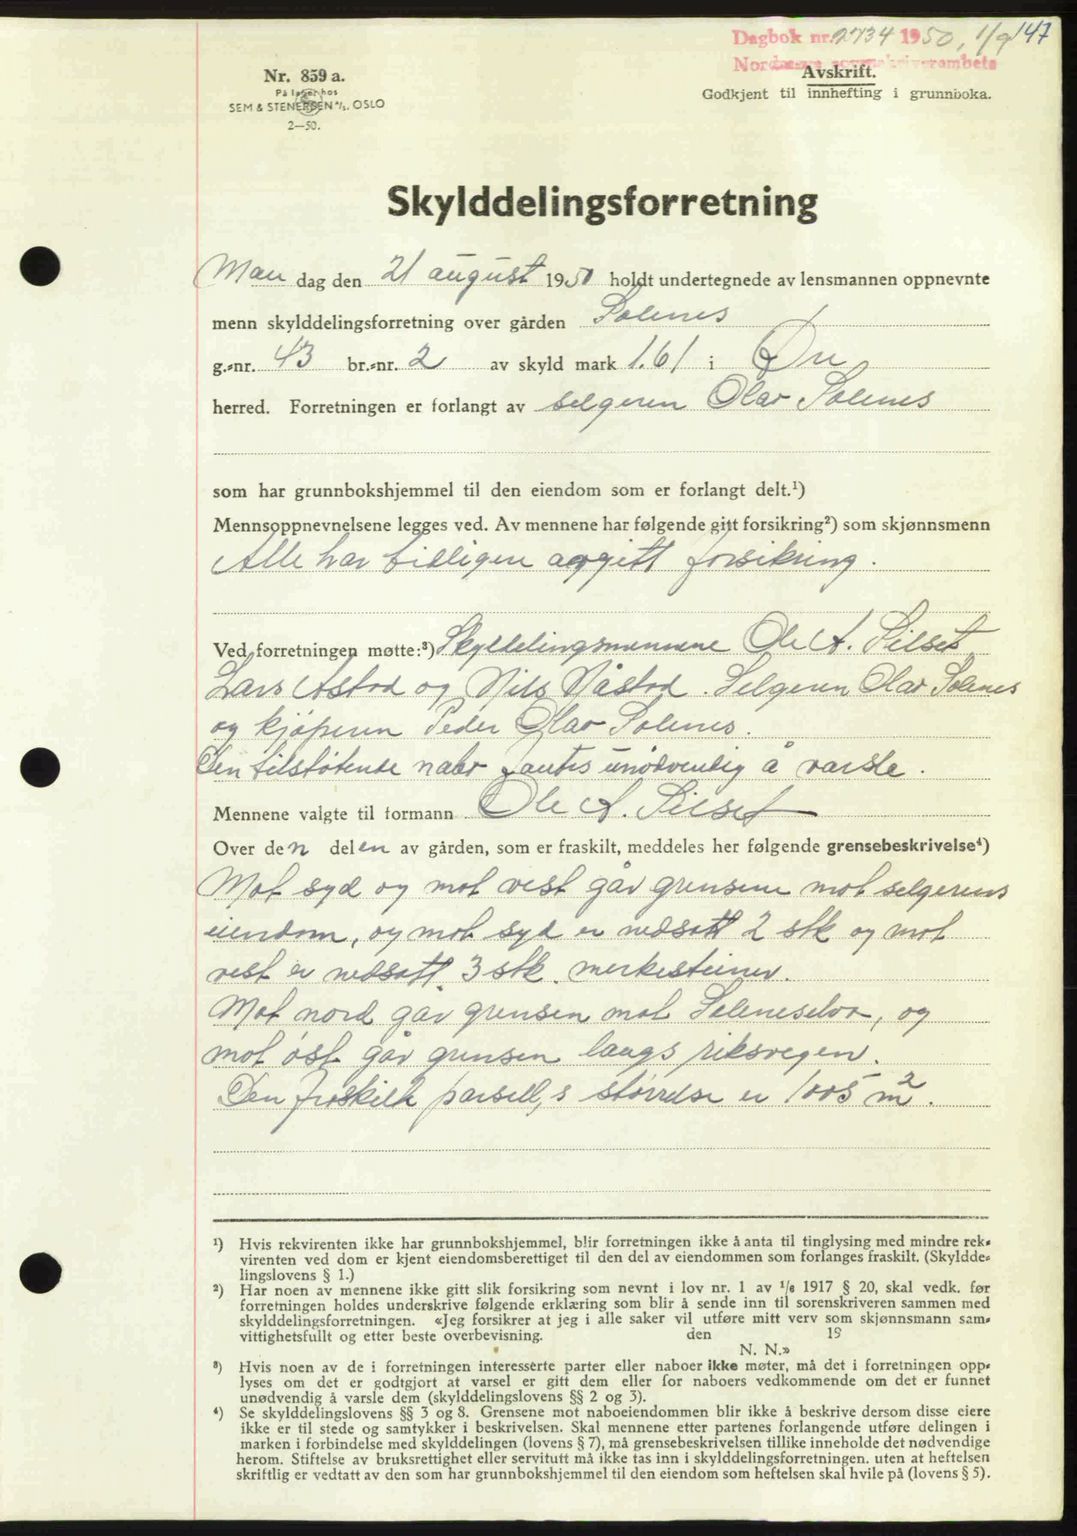 Dagbok nr. 2734 1950, 1/9 147
Nordmøre sorenskriverembete
Avskrift.
Godkjent til innhefting i grunnboka.
Nr. 859 a.
På lager hos
SEM & STENERSEN A/S. OSLO
2—50.
Skylddelingsforretning
Man dag den 21 august 1950 holdt undertegnede av lensmannen oppnevnte
menn skylddelingsforretning over gården Solenes
g.-nr. 43 br.-nr. 2 av skyld mark 1.61 i Øre
herred. Forretningen er forlangt av selgeren Olav Solenes
som har grunnbokshjemmel til den eiendom som er forlangt delt.¹)
Mennsoppnevnelsene legges ved. Av mennene har følgende gitt forsikring²) som skjønnsmenn
Alle har tidligere avgitt forsikring.
Ved forretningen møtte:³) Skylddelingsmennene Ole A. Silset,
Lars Astad og Nils Nåstad. Selgeren Olav Solenes
og kjøperen Peder Olav Solenes.
Den tilstøtende nabo fantes unødvendig å varsle.
Mennene valgte til formann Ole A. Silset
Over den delen av gården, som er fraskilt, meddeles her følgende grensebeskrivelse⁴)
Mot syd og mot vest går grensene mot selgerens
eiendom, og mot syd er nedsatt 2 stk og mot
vest er nedsatt 3 stk. merkesteiner.
Mot nord går grensen mot Soleneselva, og
mot øst går grensen langs riksvegen.
Den fraskilte parsell,s størrelse er 1005 m².
¹) Hvis rekvirenten ikke har grunnbokshjemmel, blir forretningen ikke å anta til tinglysing med mindre rek-
virenten ved dom er kjent eiendomsberettiget til den del av eiendommen som forlanges fraskilt. (Skyldde-
lingslovens § 1.)
²) Har noen av mennene ikke gitt slik forsikring som nevnt i lov nr. 1 av 1/6 1917 § 20, skal vedk. før
forretningen holdes underskrive følgende erklæring som blir å sende inn til sorenskriveren sammen med
skylddelingsforretningen. «Jeg forsikrer at jeg i alle saker vil utføre mitt verv som skjønnsmann sam-
vittighetsfullt og etter beste overbevisning. den 19
N. N.»
³) Hvis noen av de i forretningen interesserte parter eller naboer ikke møter, må det i forretningen opp-
lyses om det er godtgjort at varsel er gitt dem eller for naboers vedkommende om det er funnet
unødvendig å varsle dem (skylddelingslovens §§ 2 og 3).
⁴) Se skylddelingslovens §§ 3 og 8. Grensene mot naboeiendommen blir ikke å beskrive dersom disse eiere
ikke er til stede og samtykker i beskrivelsen. Skal mennene etter partenes forlangende utføre delingen i
marken i forbindelse med skylddelingen (lovens § 7), må grensebeskrivelsen tillike inneholde det nødvendige
herom. Stiftelse av bruksrettighet eller servitutt må ikke tas inn i skylddelingsforretningen. uten at heftelsen
skriftlig er vedtatt av den som har grunnbokshjemmel til den eiendom som heftelsen skal hvile på (lovens § 5).